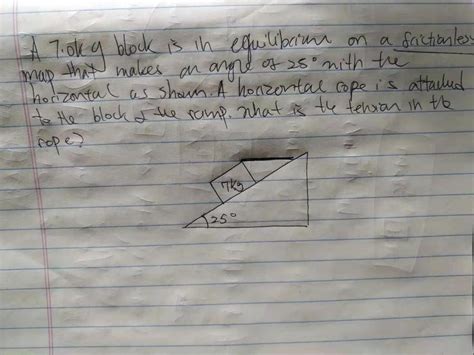 A 7.0kg block is in equilibrium on a frictionless
map that makes an angle of 25° with the
horizontal as shown. A horizontal rope is attached
to the block & the ramp. what is the tension in the
rope?
7kg
25°